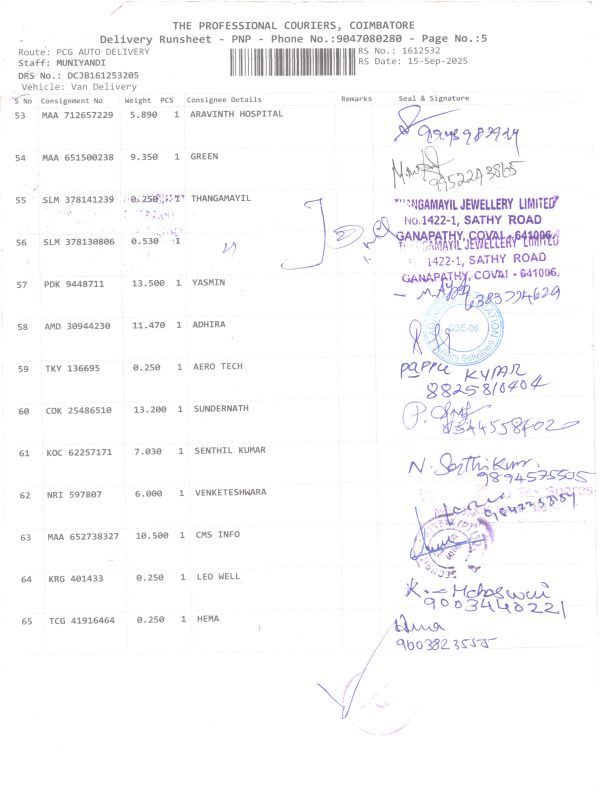 THE PROFESSIONAL COURIERS, COIMBATORE
Delivery Runsheet - PNP - Phone No.:9047080280 - Page No.:5
Route: PCG AUTO DELIVERY RS No.: 1612532
Staff: MUNIYANDI RS Date: 15-Sep-2025
DRS No.: DCJB161253205
Vehicle: Van Delivery
S No Consignment No Weight PCS Consignee Details Remarks Seal & Signature
53 MAA 712657229 5.890 1 ARAVINTH HOSPITAL
54 MAA 651500238 9.350 1 GREEN
9952243865
55 SLM 378141239 0.250 1 THANGAMAYIL
THANGAMAYIL JEWELLERY LIMITED
No.1422-1, SATHY ROAD
GANAPATHY, COVAI - 641006.
56 SLM 378130806 0.530 1
THANGAMAYIL JEWELLERY LIMITED
1422-1, SATHY ROAD
GANAPATHY, COVAI - 641006.
57 PDK 9448711 13.500 1 YASMIN
6383774629
58 AMD 30944230 11.470 1 ADHIRA
CBE-06
59 TKY 136695 0.250 1 AERO TECH
PAPPU KUMAR
8825810404
60 COK 25486510 13.200 1 SUNDERNATH
61 KOC 62257171 7.030 1 SENTHIL KUMAR
N. Senthilkumar
9894575505
62 NRI 597807 6.000 1 VENKETESHWARA
63 MAA 652738327 10.500 1 CMS INFO
64 KRG 401433 0.250 1 LEO WELL
9003440221
65 TCG 41916464 0.250 1 HEMA
Hema
9003823555